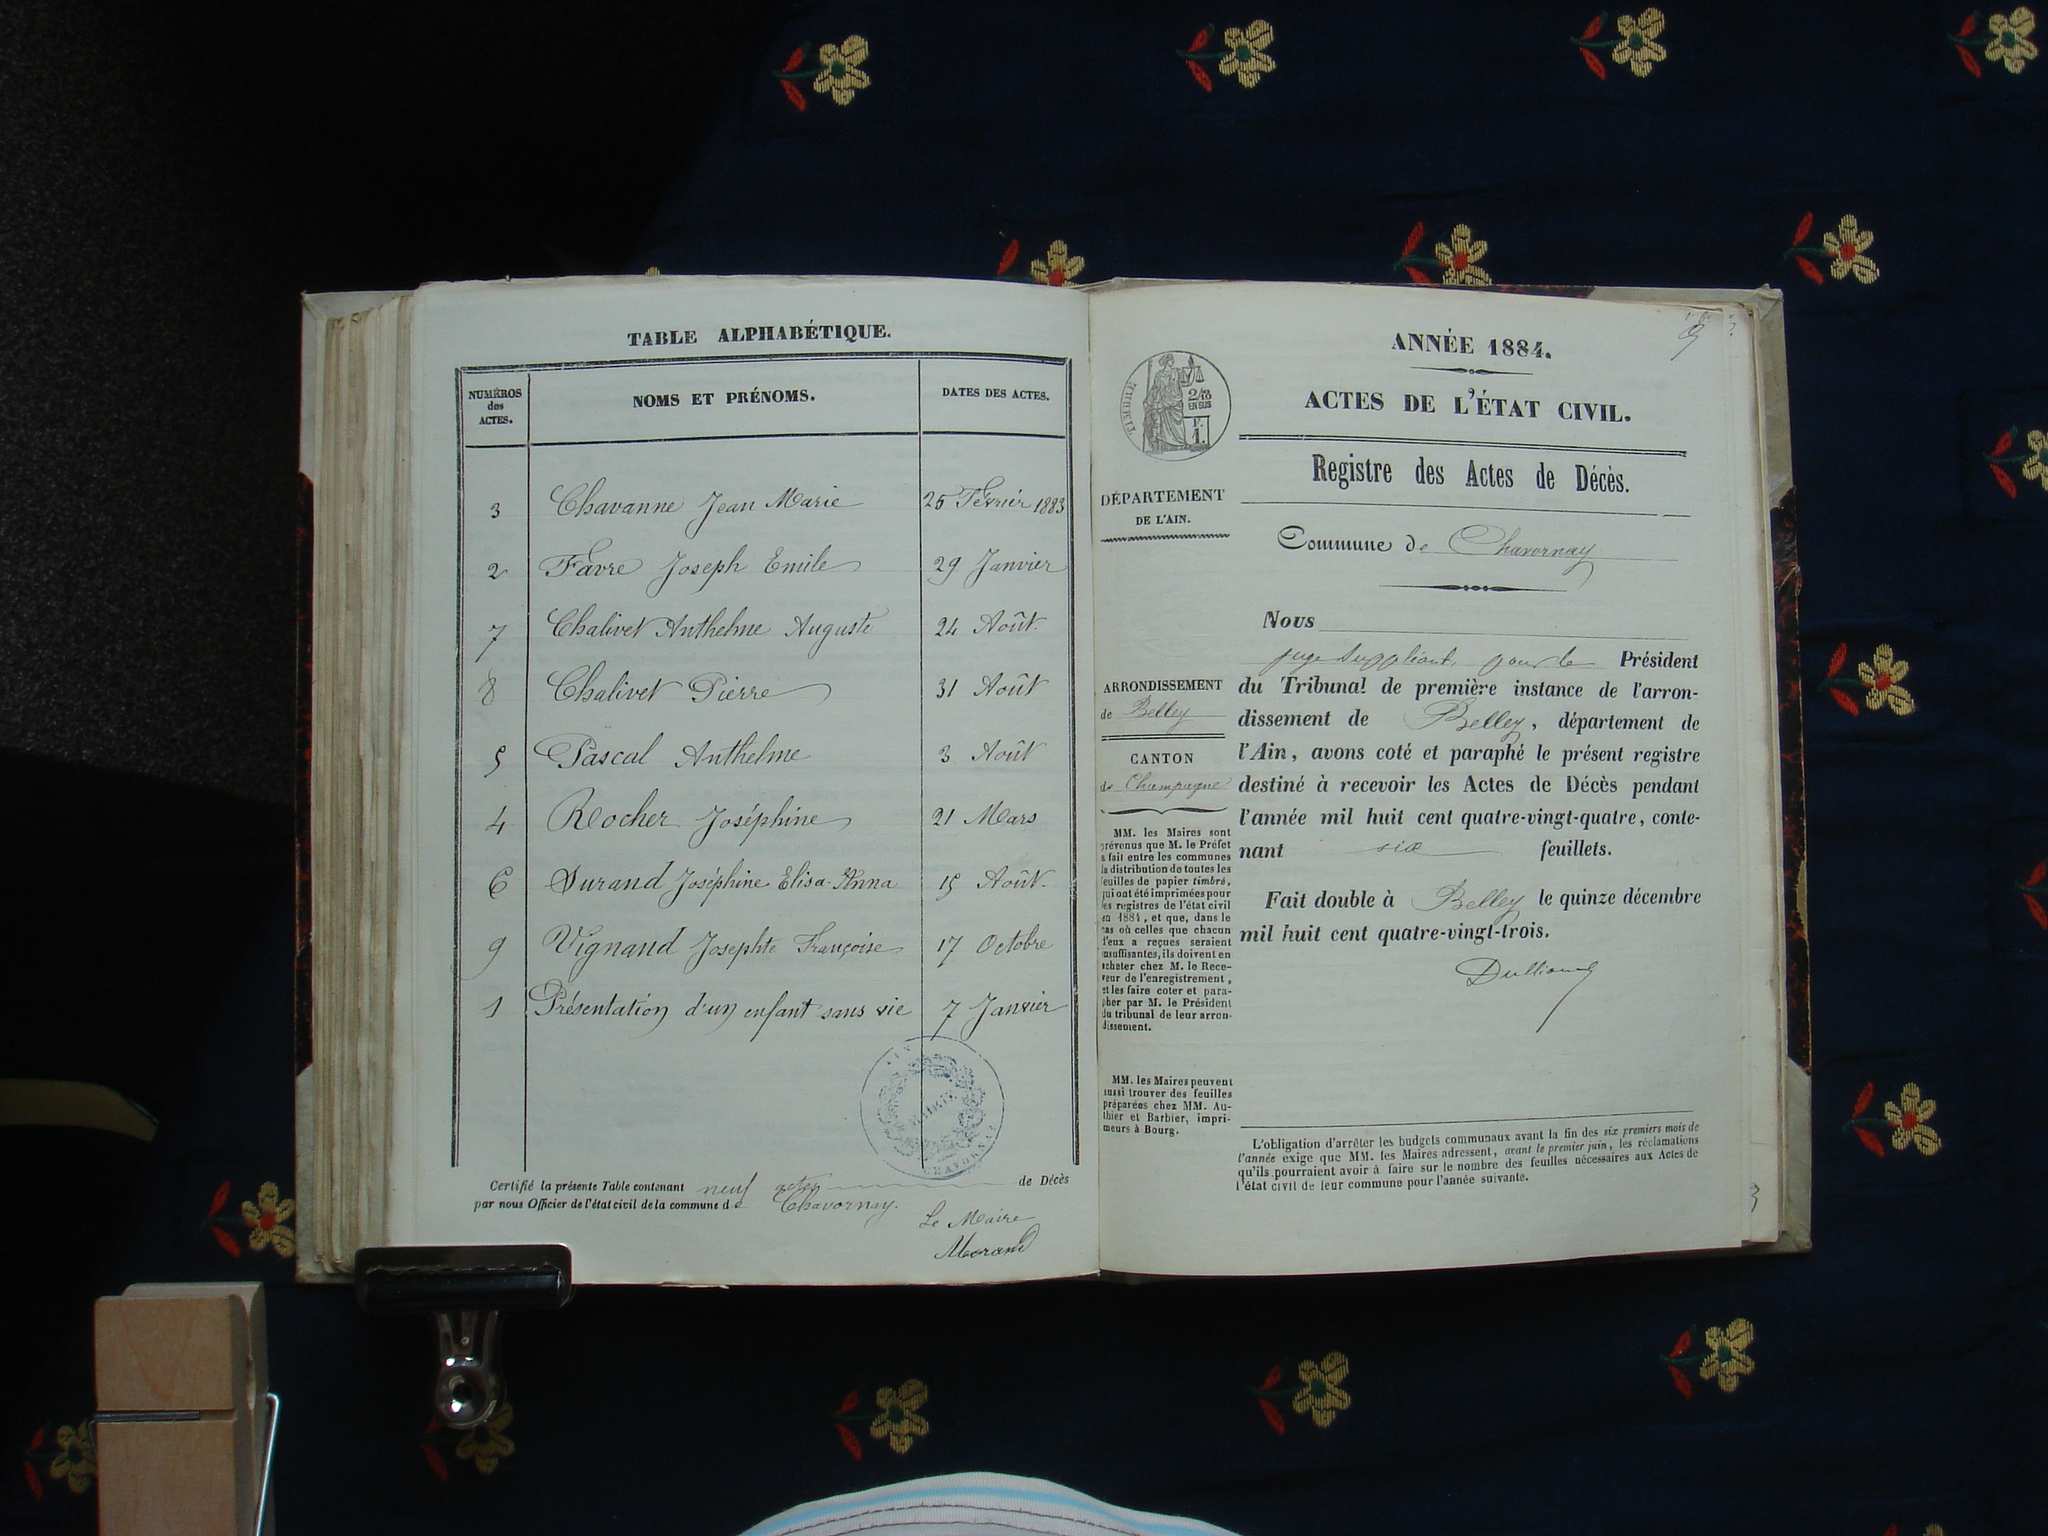 TABLE ALPHABÉTIQUE.
NUMÉROS des ACTES. NOMS ET PRÉNOMS. DATES DES ACTES.
3 Chavanne Jean Marie 25 Février 1883
2 Favre Joseph Emile 29 Janvier
7 Chalivet Anthelme Auguste 24 Août.
8 Chalivet Pierre 31 Août
5 Pascal Anthelme 3 Août
4 Rocher Joséphine 21 Mars
6 Durand Joséphine Elisa-Anna 15 Août.
9 Vignand Josephte Françoise 17 Octobre
1 Présentation d'un enfant sans vie 7 Janvier
MAIRIE
CHAVORNAY
Certifié la présente Table contenant neuf actes de Décès
par nous Officier de l'état civil de la commune de Chavornay.
Le Maire
Morand
ANNÉE 1884.
ACTES DE L'ÉTAT CIVIL.
Registre des Actes de Décès.
Commune de Chavornay
TIMBRE
2/10
EN SUS
F.
1.
DÉPARTEMENT
DE L'AIN.
ARRONDISSEMENT
de Belley
CANTON
de Champagne
MM. les Maires sont
prévenus que M. le Préfet
a fait entre les communes
la distribution de toutes les
feuilles de papier timbré,
qui ont été imprimées pour
les registres de l'état civil
en 1884, et que, dans le
cas où celles que chacun
d'eux a reçues seraient
insuffisantes, ils doivent en
acheter chez M. le Rece-
veur de l'enregistrement,
et les faire coter et para-
pher par M. le Président
du tribunal de leur arron-
dissement.
MM. les Maires peuvent
aussi trouver des feuilles
préparées chez MM. Au-
thier et Barbier, impri-
meurs à Bourg.
Nous
juge suppléant, pour le Président
du Tribunal de première instance de l'arron-
dissement de Belley, département de
l'Ain, avons coté et paraphé le présent registre
destiné à recevoir les Actes de Décès pendant
l'année mil huit cent quatre-vingt-quatre, conte-
nant six feuillets.
Fait double à Belley le quinze décembre
mil huit cent quatre-vingt-trois.
L'obligation d'arrêter les budgets communaux avant la fin des six premiers mois de
l'année exige que MM. les Maires adressent, avant le premier juin, les réclamations
qu'ils pourraient avoir à faire sur le nombre des feuilles nécessaires aux Actes de
l'état civil de leur commune pour l'année suivante.